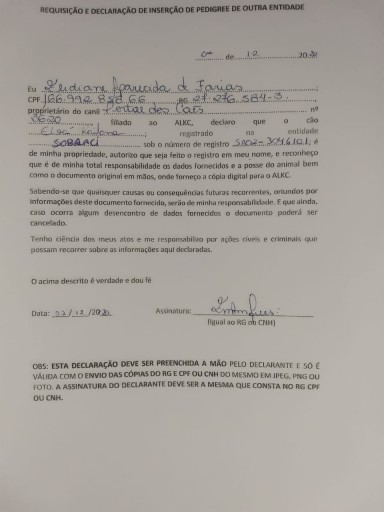 REQUISIÇÃO E DECLARAÇÃO DE INSERÇÃO DE PEDIGREE DE OUTRA ENTIDADE
de 12 2020
Eu Leidiane Aparecida de Farias
CPF 166.992.828.66 RG 27.276.584-3
proprietário do canil Portal dos Cães nº
3620 filiado ao ALKC, declaro que o cão
registrado na entidade
SOBRACI sob o número de registro é
de minha propriedade, autorizo que seja feito o registro em meu nome, e reconheço
que é de minha total responsabilidade os dados fornecidos e a posse do animal bem
como o documento original em mãos, onde forneço a cópia digital para o ALKC.
Sabendo-se que quaisquer causas ou consequências futuras recorrentes, oriundos por
informações deste documento fornecido, serão de minha responsabilidade. E que ainda,
caso ocorra algum desencontro de dados fornecidos o documento poderá ser
cancelado.
Tenho ciência dos meus atos e me responsabilizo por ações cíveis e criminais que
possam recorrer sobre as informações aqui declaradas.
O acima descrito é verdade e dou fé
Data: /12/2020 Assinatura:
(Igual ao RG ou CNH)
OBS: ESTA DECLARAÇÃO DEVE SER PREENCHIDA A MÃO PELO DECLARANTE E SÓ É
VÁLIDA COM O ENVIO DAS CÓPIAS DO RG E CPF OU CNH DO MESMO EM JPEG, PNG OU
FOTO. A ASSINATURA DO DECLARANTE DEVE SER A MESMA QUE CONSTA NO RG CPF
OU CNH.